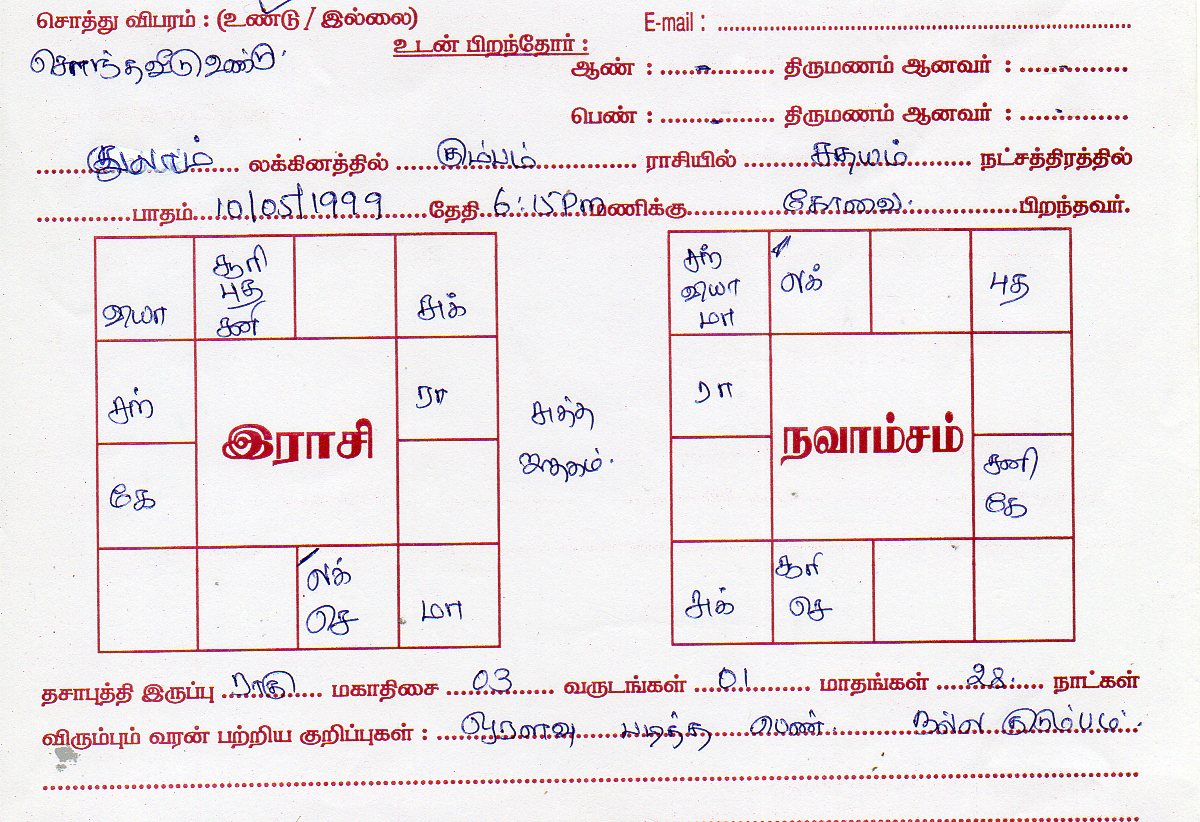 சொத்து விபரம் : (உண்டு / இல்லை) E-mail : ..............................
சொந்த வீடு உண்டு.
உடன் பிறந்தோர் :
ஆண் : ...... - ......... திருமணம் ஆனவர் : ...... - .........
பெண் : ...... - ......... திருமணம் ஆனவர் : ...... - .........
துலாம் லக்கினத்தில் கும்பம் ராசியில் சதயம் நட்சத்திரத்தில்
பாதம் 10/05/1999 தேதி 6:15 Pm மணிக்கு கோவை. பிறந்தவர்.
வியா
சூரி
புத
சனி
சுக்
சந்
ரா
கே
இராசி
லக்
செ
மா
சுத்த
ஜாதகம்.
சந்
வியா
மா
லக்
புத
ரா
நவாம்சம்
சனி
கே
சுக்
சூரி
செ
தசாபுத்தி இருப்பு ராகு மகாதிசை 03 வருடங்கள் 01 மாதங்கள் 28. நாட்கள்
விரும்பும் வரன் பற்றிய குறிப்புகள் : ஓரளவு படித்த பெண். நல்ல குடும்பம்.